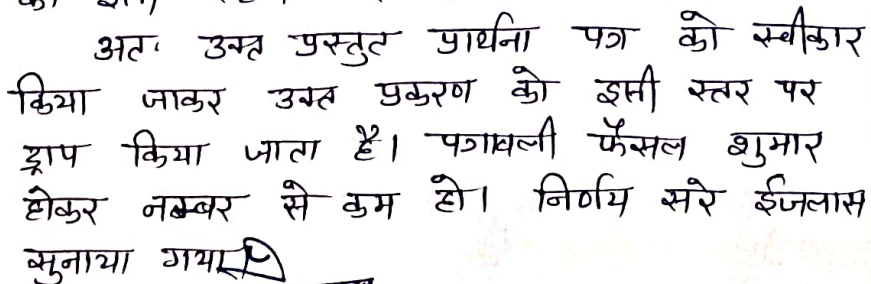 अतः उक्त प्रस्तुत प्रार्थना पत्र को स्वीकार
किया जाकर उक्त प्रकरण को इसी स्तर पर
ड्राप किया जाता है। पत्रावली फैसल शुमार
होकर नम्बर से कम हो। निर्णय सरे ईजलास
सुनाया गया